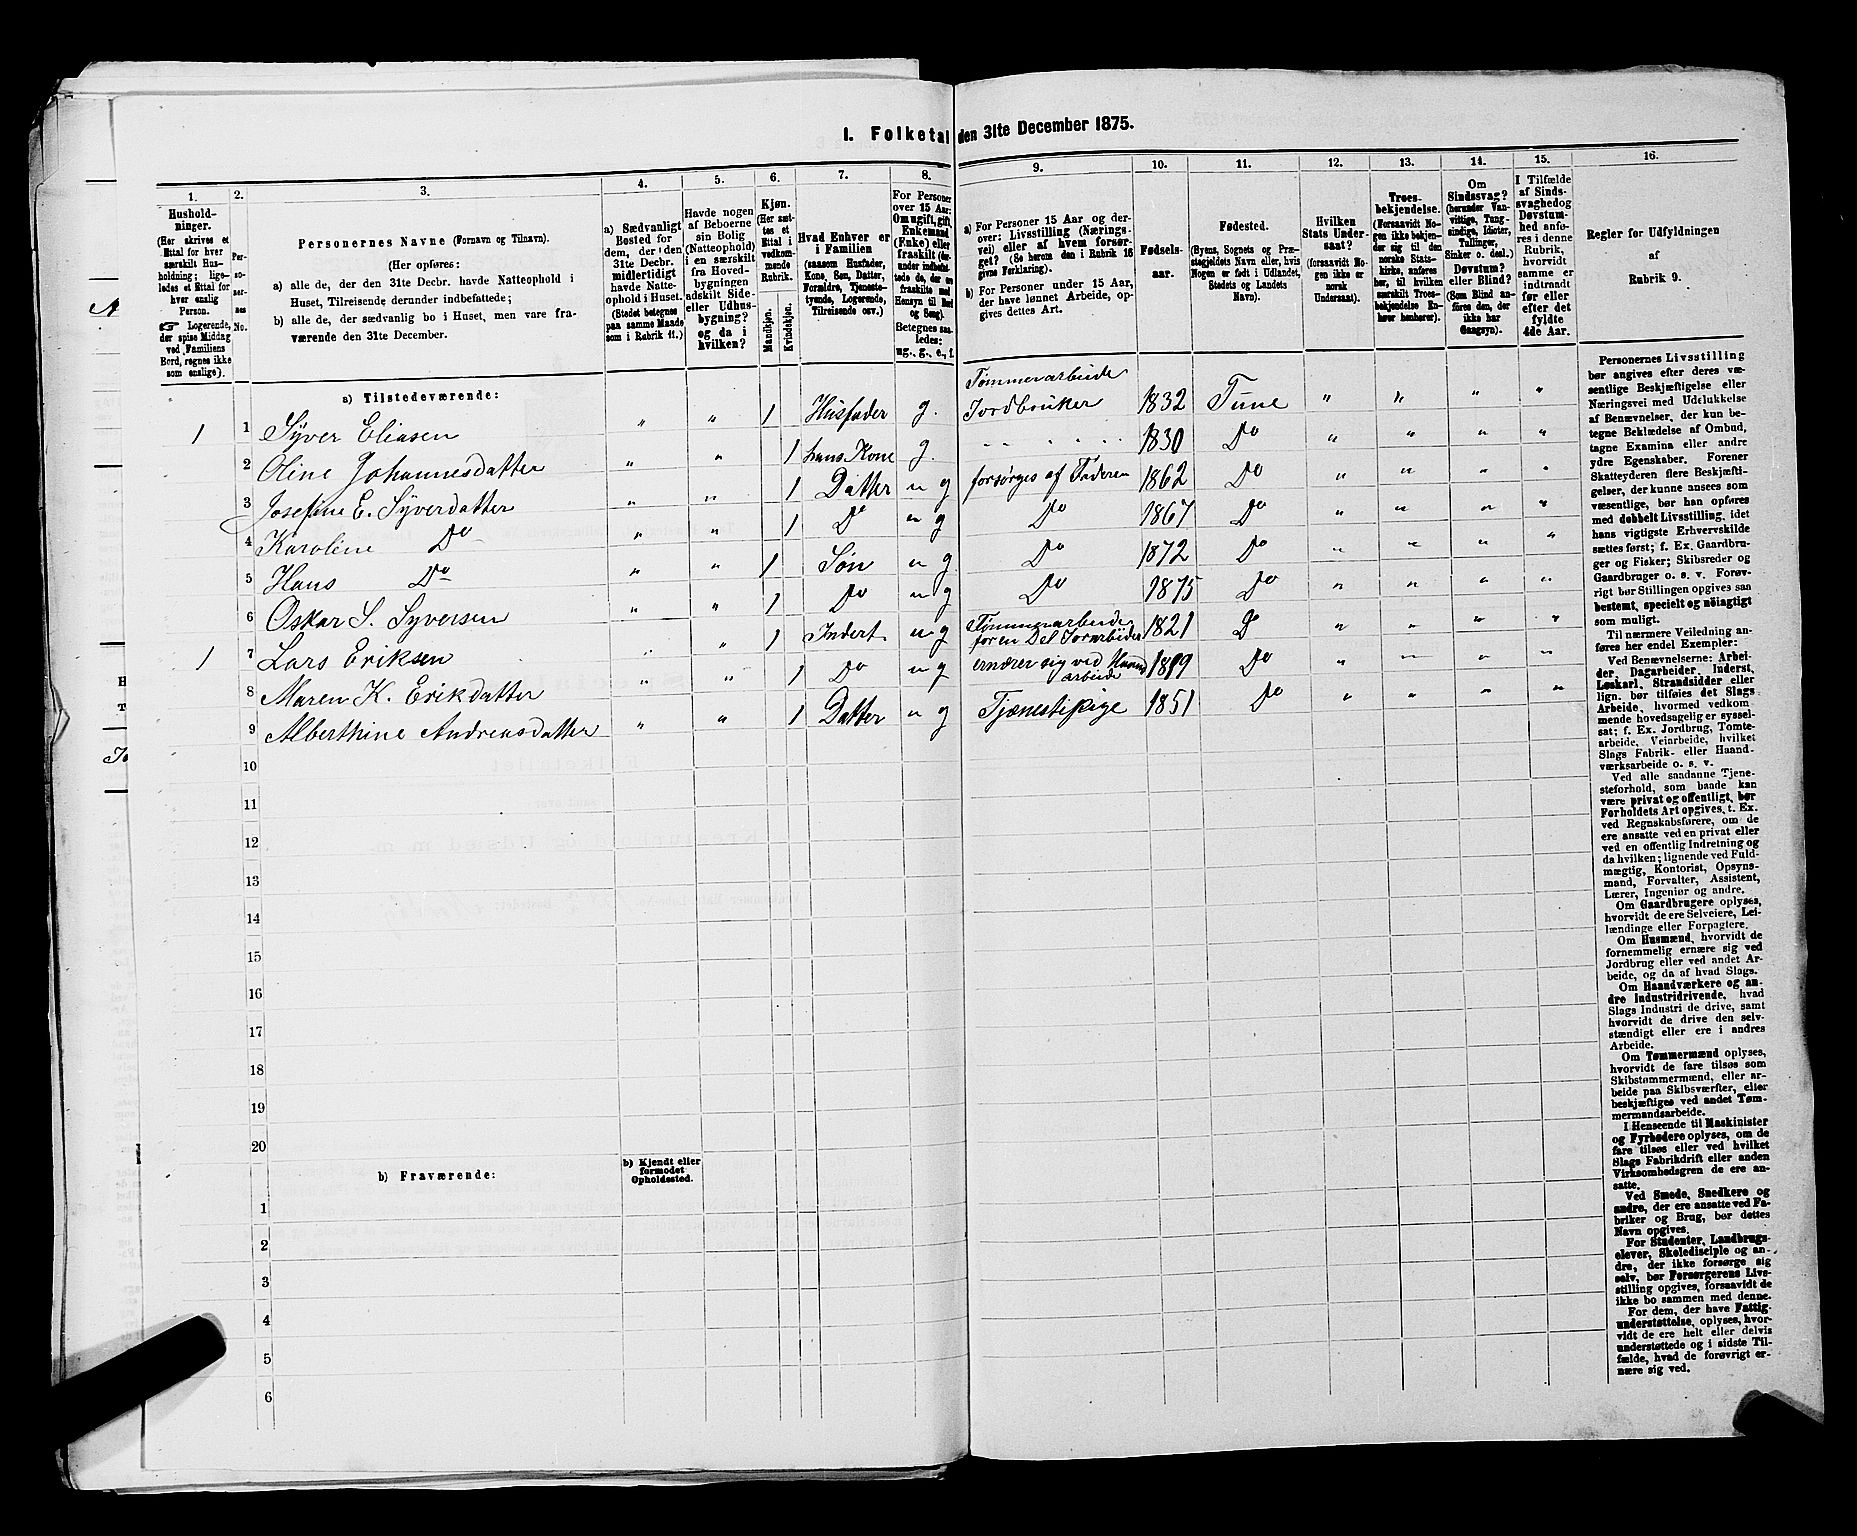 I. Folketal den 31te December 1875.
1.
Hushold-
ninger.
(Her skrives et
Ettal for hver
særskilt Hus-
holdning; lige-
ledes et Ettal for
hver enslig
Person.
Logerende,
der spise Middag
ved Familiens
Bord, regnes ikke
som enslige).
2.
Per-
so-
ner-
nes
No.
3.
Personernes Navne (Fornavn og Tilnavn).
(Her opføres:
a) alle de, der den 31te Decbr. havde Natteophold i
Huset, Tilreisende derunder indbefattede;
b) alle de, der sædvanlig bo i Huset, men vare fra-
værende den 31te December.
4.
a) Sædvanligt
Bosted for
dem, der i den
31te Decbr.
midlertidigt
havde Natte-
ophold i Huset.
(Stedet betegnes
paa samme Maade
som i Rubrik 11.)
5.
Havde nogen
af Beboerne
sin Bolig
(Natteophold)
i en særskilt
fra Hoved-
bygningen
adskilt Side-
eller Udhus-
bygning?
og da i
hvilken?
6.
Kjøn.
(Her sæt-
tes et
Ettal i
vedkom-
mende
Rubrik.
Mandkjøn.
Kvindekjøn.
7.
Hvad Enhver er
i Familien
(saasom Husfader,
Kone, Søn, Datter,
Forældre, Tjeneste-
tyende, Logerende,
Tilreisende osv.)
8.
For Personer
over 15 Aar:
Om ugift, gift,
Enkemand
(Enke) eller
fraskilt
Betegnes saa-
ledes:
ug., g., e., f.
9.
a) For Personer 15 Aar og der-
over: Livsstilling (Nærings-
vei) eller af hvem forsør-
get? (Se herom den i Rubrik 16
givne Forklaring).
b) For Personer under 15 Aar,
der have lønnet Arbeide, op-
gives dettes Art.
10.
Fødsels-
aar.
11.
Fødested.
(Byens, Sognets og Præ-
stegjeldets Navn eller, hvis
Nogen er født i Udlandet,
Stedets og Landets
Navn).
12.
Hvilken
Stats Under-
saat?
(forsaavidt No-
gen ikke er
norsk
Undersaat).
13.
Troes-
bekjendelse.
(Forsaavidt No-
gen ikke bekjen-
der sig til den
norske Stats-
kirke, anføres
her, til hvilken
særskilt Troes-
bekjendelse En-
hver henhører).
14.
Om
Sindssvag?
(herunder Van-
vittige, Tung-
sindige, Idioter,
Tullinger,
Sinker o. desl.)
Døvstum?
eller Blind?
(Som Blind an-
føres den, der
ikke har
Gangsyn).
15.
I Tilfælde
af Sinds-
svaghed og
Døvstum-
hed anfø-
res i denne
Rubrik,
hvorvidt
samme er
indtraadt
før eller
efter det
fyldte
4de Aar.
16.
Regler for Udfyldningen
af
Rubrik 9.
a) Tilstedeværende:
1 1 Syver Eliasen " " 1 Husfader g. Tømmerarbeide Jordbruker 1832 Tune " " " "
2 Oline Johannesdatter " " 1 hans Kone g. " " " " " 1830 Do " " " "
3 Josefine E. Syverdatter " " 1 Datter u g forsørges af Faderen 1862 Do " " " "
4 Karoline Do " " 1 Do u g Do 1867 Do " " " "
5 Hans Do " " 1 Søn u g Do 1872 Do " " " "
6 Oskar S. Syversen " " 1 Do u g Do 1875 Do " " " "
1 7 Lars Eriksen " " 1 Inderst u g Tømmerarbeide for en Del Jorarbeide 1821 Do " " " "
8 Maren K. Erikdatter " " 1 Do u g ernærer sig ved Haandarbeide 1819 Do " " " "
9 Alberthine Andreasdatter " " 1 Datter u g Tjenestepige 1851 Do " " " "
10
11
12
13
14
15
16
17
18
19
20
b) Fraværende:
b) Kjendt eller
formodet
Opholdssted.
1
2
3
4
5
6
Personernes Livsstilling
bør angives efter deres væ-
sentlige Beskjæftigelse eller
Næringsvei med Udelukkelse
af Benævnelser, der kun be-
tegne Beklædelse af Ombud,
tagne Examina eller andre
ydre Egenskaber. Forener
Skatteyderen flere Beskjæfti-
gelser, der kunne ansees som
væsentlige, bør han opføres
med dobbelt Livsstilling, idet
hans vigtigste Erhvervskilde
sættes først; f. Ex. Gaardbru-
ger og Fisker; Skibsreder og
Gaardbruger o. s. v. Forøv-
rigt bør Stillingen opgives saa
bestemt, specielt og nøiagtigt
som muligt.
Til nærmere Veiledning an-
føres her endel Exempler:
Ved Benævnelserne: Arbei-
der, Dagarbeider, Inderst,
Løskarl, Strandsidder eller
lign. bør tilføies det Slags
Arbeide, hvormed vedkom-
mende hovedsagelig er syssel-
sat; f. Ex. Jordbrug, Tomte-
arbeide, Veiarbeide, hvilket
Slags Fabrik- eller Haand-
værksarbeide o. s. v.
Ved alle saadanne Tjene-
steforhold, som baade kan
være privat og offentligt, bør
Forholdets Art opgives, t. Ex.
ved Regnskabsførere, om de
ere ansatte ved en privat eller
ved en offentlig Indretning og
da hvilken; lignende ved Fuld-
mægtig, Kontorist, Opsyns-
mand, Forvalter, Assistent,
Lærer, Ingeniør og andre.
Om Gaardbrugere oplyses,
hvorvidt de ere Selveiere, Lei-
lændinge eller Forpagtere.
Om Husmænd, hvorvidt de
fornemmelig ernære sig ved
Jordbrug eller ved andet Ar-
beide, og da af hvad Slags.
Om Haandværkere og an-
dre Industridrivende, hvad
Slags Industri de drive, samt
hvorvidt de drive den selv-
stændigt eller ere i andres
Arbeide.
Om Tømmermænd oplyses,
hvorvidt de fare tilsøs som
Skibstømmermænd, eller ar-
beide paa Skibsværfter, eller
beskjæftiges ved andet Tøm-
mermandsarbeide.
I Henseende til Maskinister
og Fyrbødere oplyses, om de
fare tilsøs eller ved hvilket
Slags Fabrikdrift eller anden
Virksomhedsgren de ere an-
satte.
Ved Smede, Snedkere og
andre, der ere ansatte ved Fa-
briker og Brug, bør dettes
Navn opgives.
For Studenter, Landbrugs-
elever, Skoledisciple og an-
dre, der ikke forsørge sig
selv, bør Forsørgerens Livs-
stilling opgives, forsaavidt de
ikke bo sammen med denne.
For dem, der have Fattig-
understøttelse, oplyses, hvor-
vidt de ere helt eller delvis
understøttede og i sidste Til-
fælde, hvad de forøvrigt er-
nære sig ved.